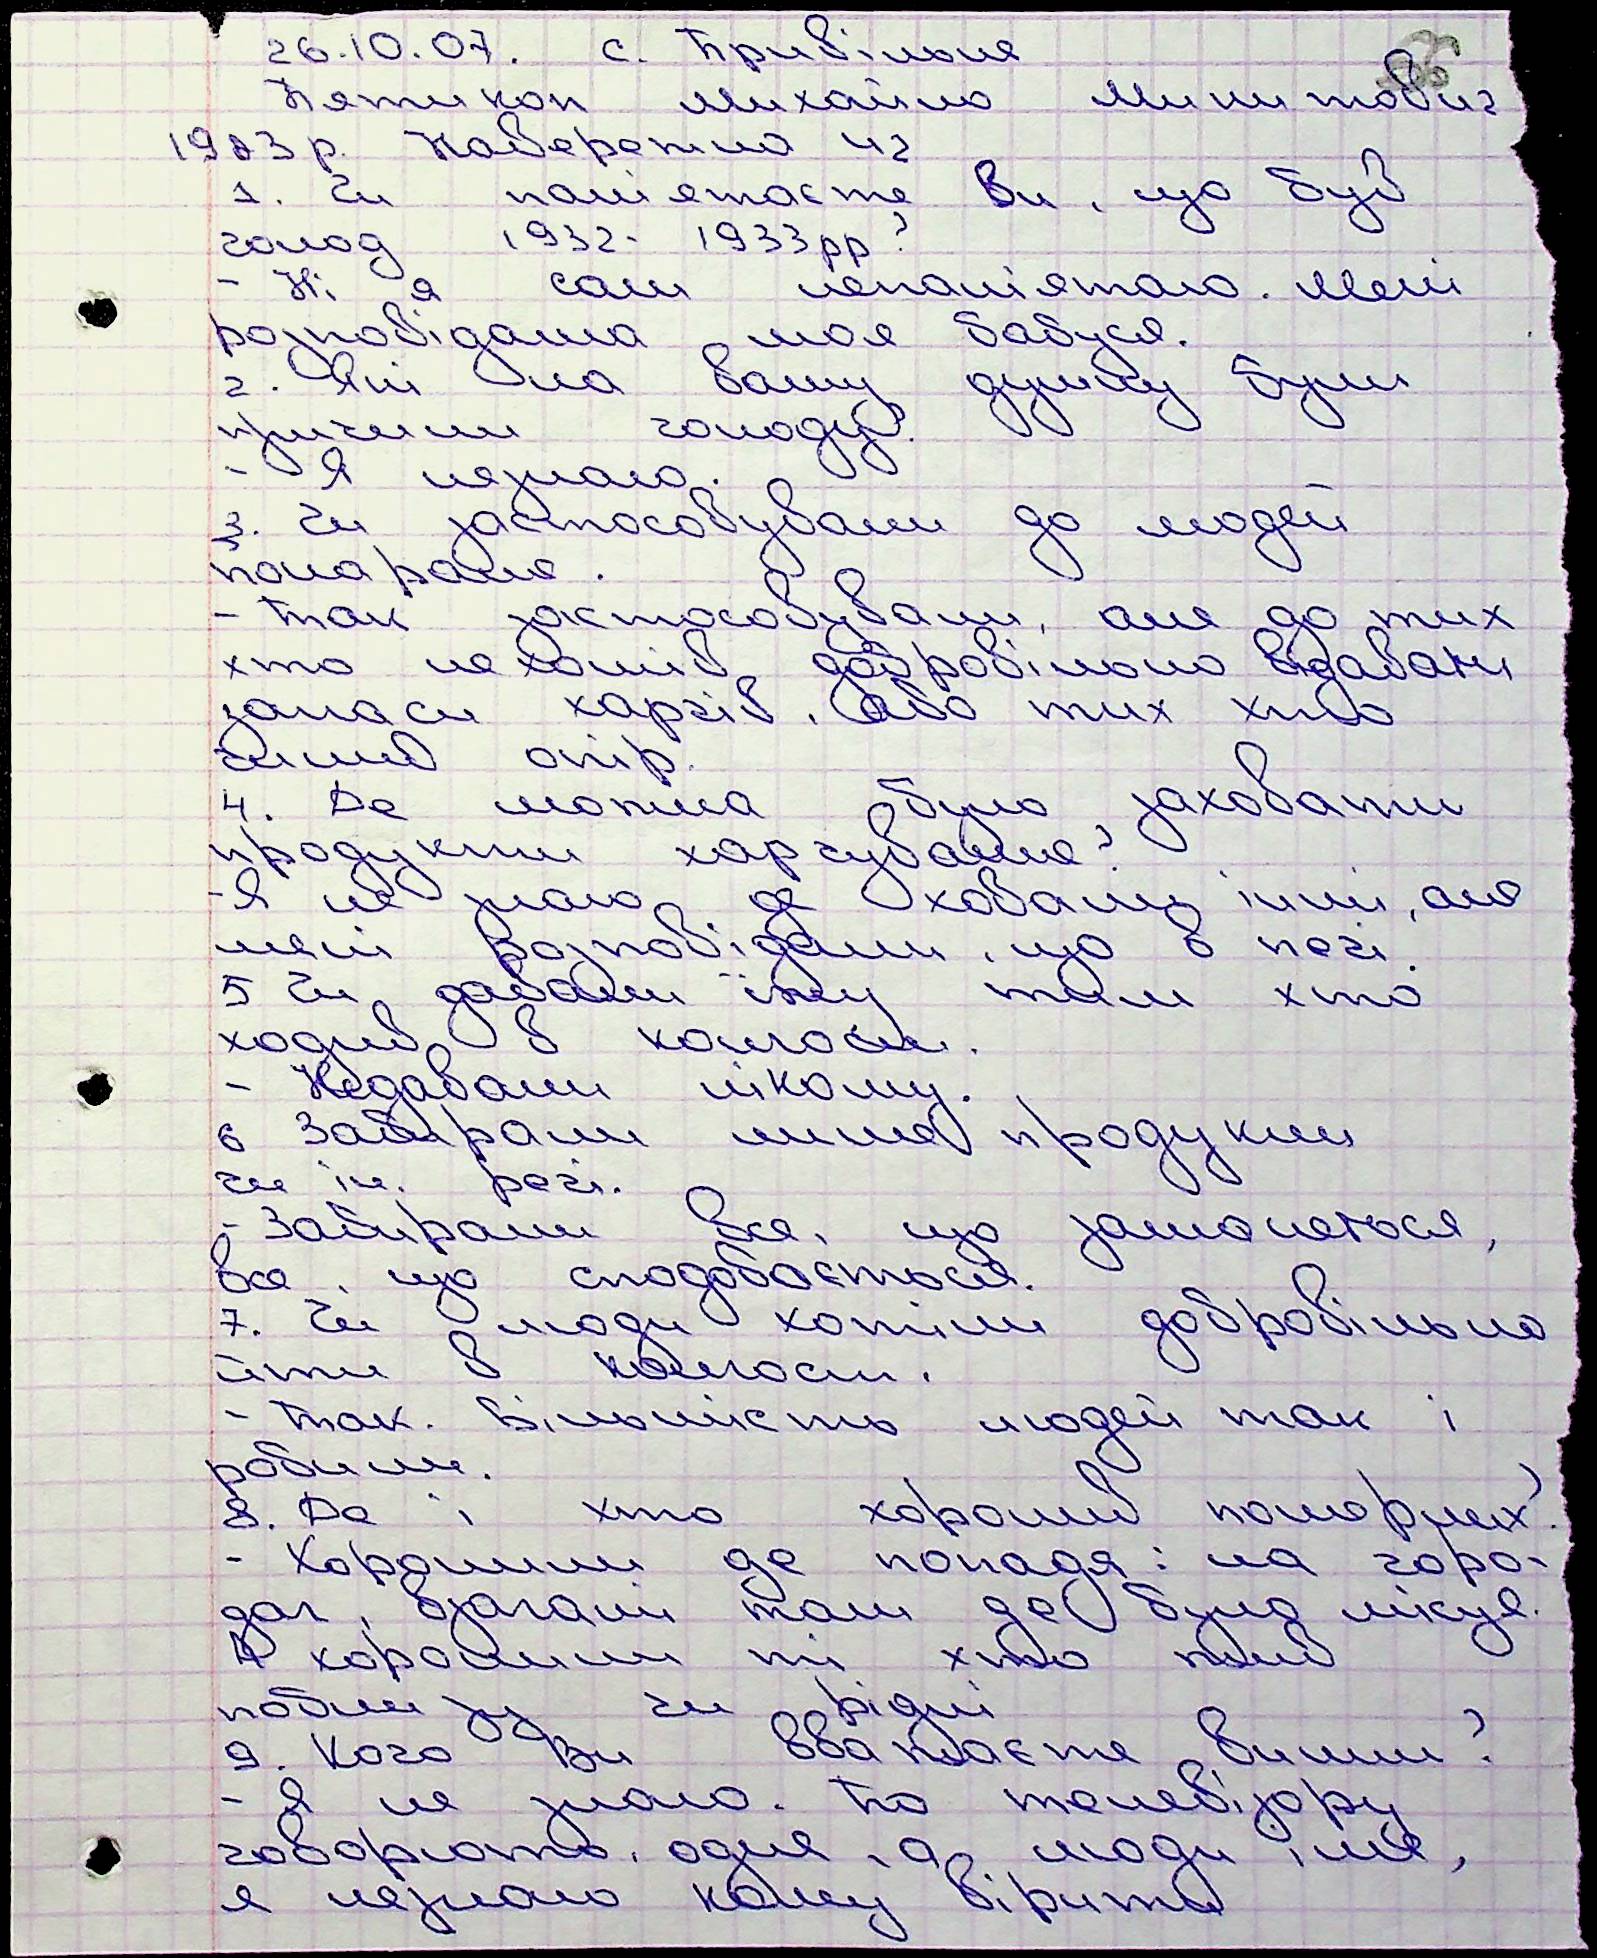 26.10.07. с. Привільне
Пятикоп Михайло Микитович
1983 р. Набережна 42
1. Чи памʼятаєте Ви, що був
голод 1932-1933рр?
- Ні я сам непамʼятаю. Мені
розповідала моя бабуся.
2. Які на вашу думку були
причини голоду?
- Я незнаю.
3. Чи застосовували до людей
покарання.
- Так застосовували, але до тих
хто нехотів добровільно віддавати
запаси харчів, або тих хто
чинив опір.
4. Де можна було заховати
продукти харчування?
- Я не знаю де ховали інші, але
мені розповідали, що в печі.
5 Чи давали їжу тим хто
ходив в колгосп.
- Недавали нікому.
6 Забирали лише продукти
чи ін. речі.
- Забирали все, що заманеться,
все, що сподобається.
7. Чи люди хотіли добровільно
йти в колгосп.
- Так. Більшість людей так і
робили.
8. Де і хто хоронив померлих?
- Хоронили де попадя: на горо-
дах, взагалі там де було місце.
А хоронили ті хто жив
поблизу чи рідні
9. Кого Ви вважаєте винним?
- Я не знаю. По телевізору
говорять одне, а люди інше,
я незнаю кому вірити